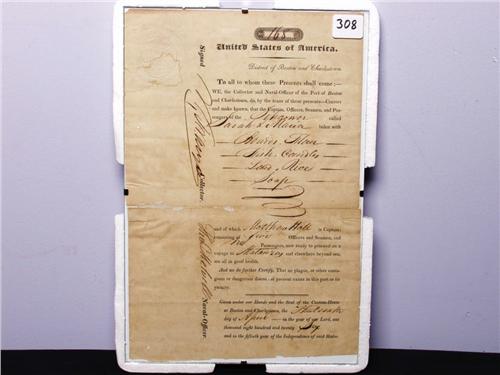 308
168
United States of America.
District of Boston and Charlestown
To all to whom these Presents shall come:—
WE, the Collector and Naval-Officer of the Port of Boston
and Charlestown, do, by the tenor of these presents—Certify
and make known, that the Captain, Officers, Seamen, and Pas-
sengers of the Schooner called
Sarah & Maria laden with
Beans Flour
Fish Candles
Lard Rice
Soap
and of which Matthew Hall is Captain;
consisting of five Officers and Seamen, and
Passengers, now ready to proceed on a
voyage to Matanzas and elsewhere beyond sea,
are all in good health.
And we do further Certify, That no plague, or other conta-
gious or dangerous disease, at present exists in this port or its
vicinity.
Given under our Hands and the Seal of the Custom-House
at Boston and Charlestown, the
day of April in the year of our Lord, one
thousand eight hundred and twenty Six
and in the fiftieth year of the Independence of said States
Signed
Collector.
Naval-Officer.